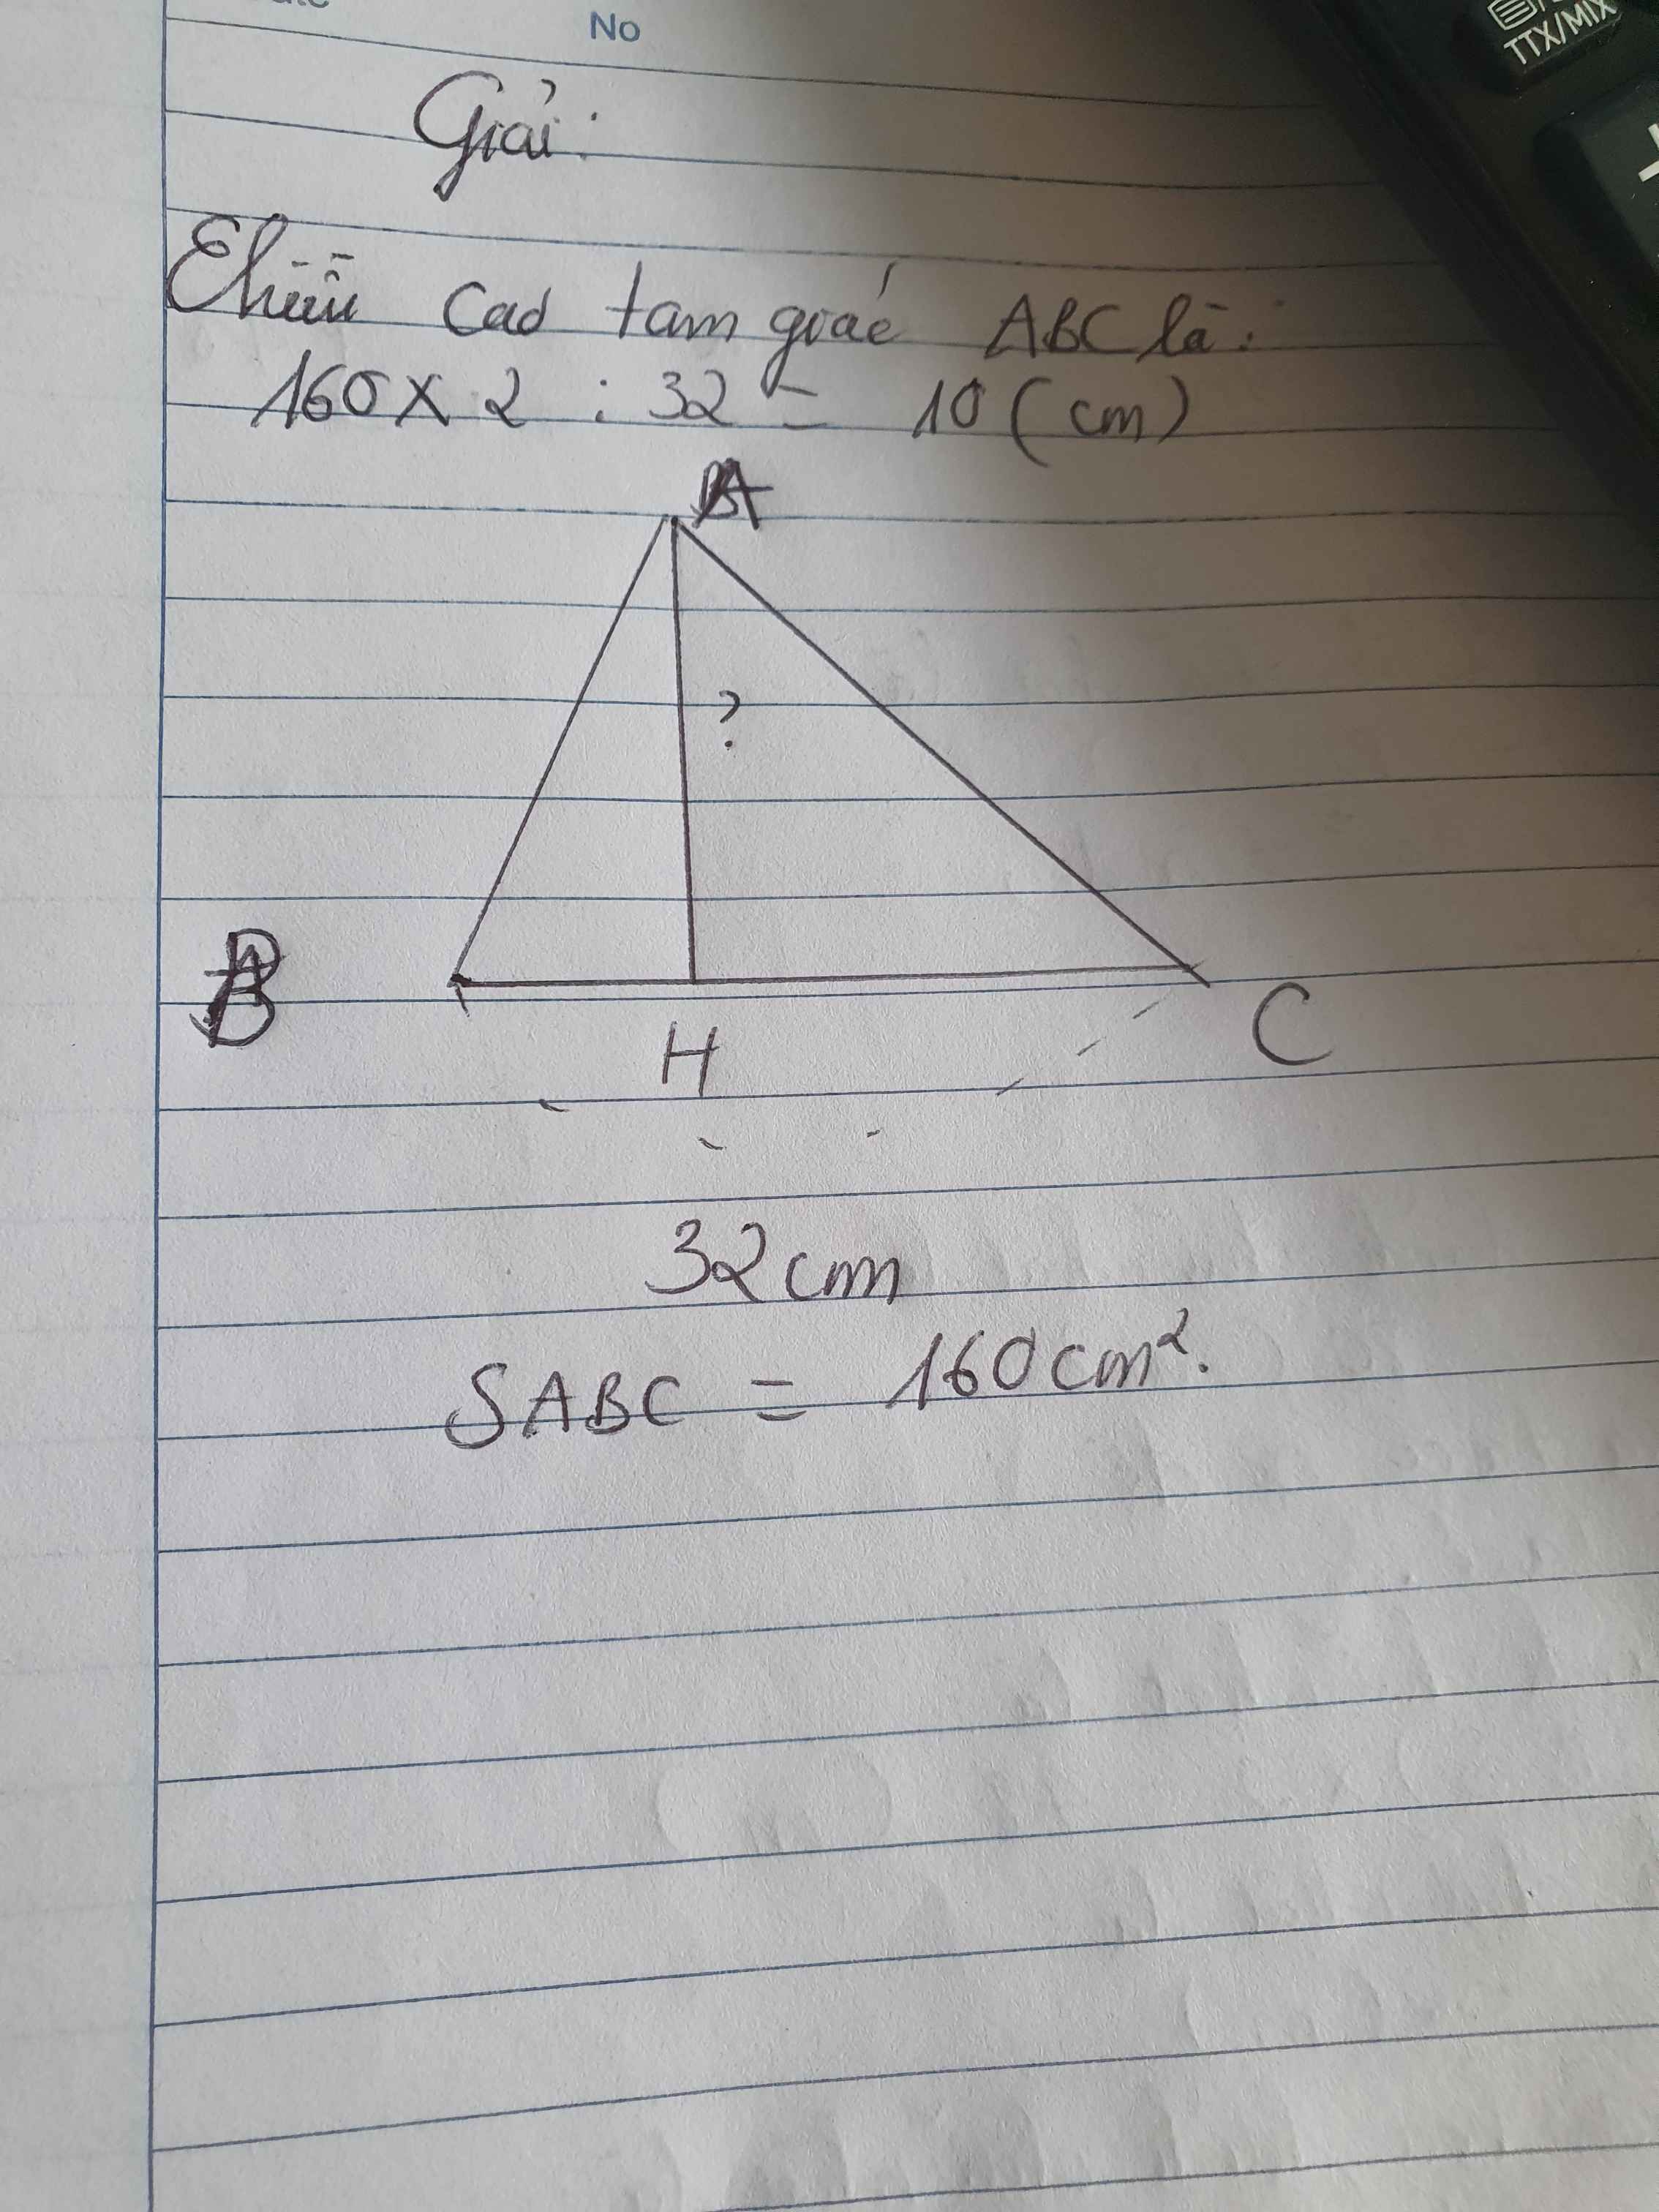 No
TTX/MIX
Giải:
Chiều cao tam giác ABC là:
160 x 2 : 32 = 10 (cm)
A
?
B
H
C
32cm
SABC = 160cm².